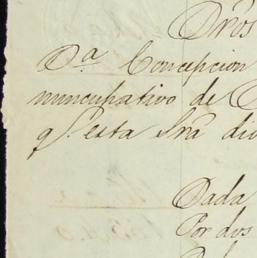 Dros
Da. Concepcion
nuncupativo de
q. esta Sra. dio
Dada
Por dos